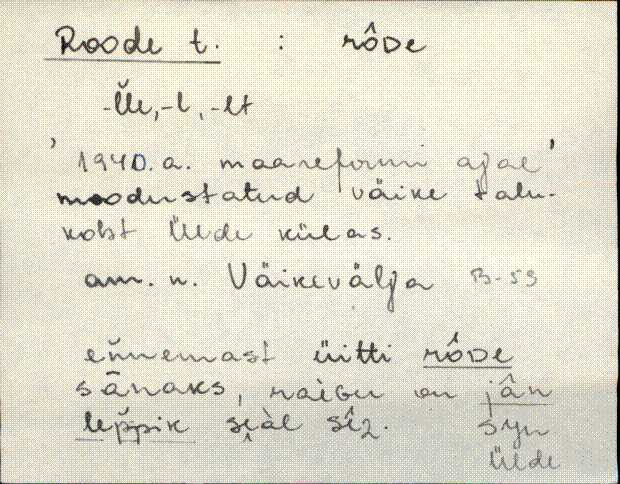 Roode t. : rôDe
-l̆le, -l, -lt
'1940. a. maareformi ajal'
moodustatud väike talu-
koht Ülde külas.
am. n. Väikevälja B-59
eňnemast üitti rôDe
sānaks, raìbu on jân
lep̆pik siàl sîz. syn
Ülde